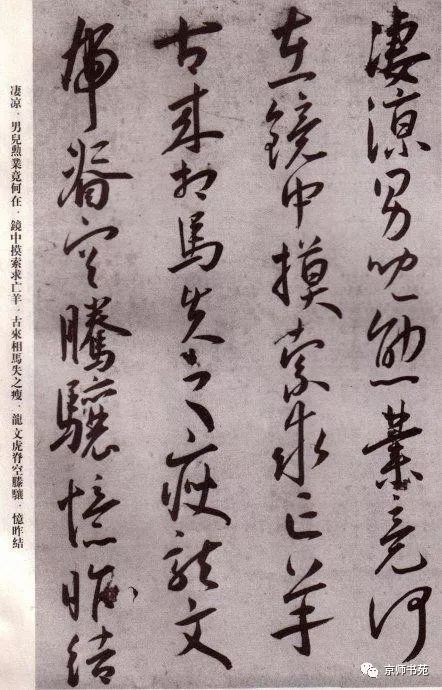 凄涼男兒勲業竟何
在鏡中摸索求亡羊
古来相馬失之瘦龍文
虎脊空騰驤憶昨結
凄涼．男兒勲業竟何在．鏡中摸索求亡羊．古來相馬失之瘦．龍文虎脊空騰驤．憶昨結
京师书苑